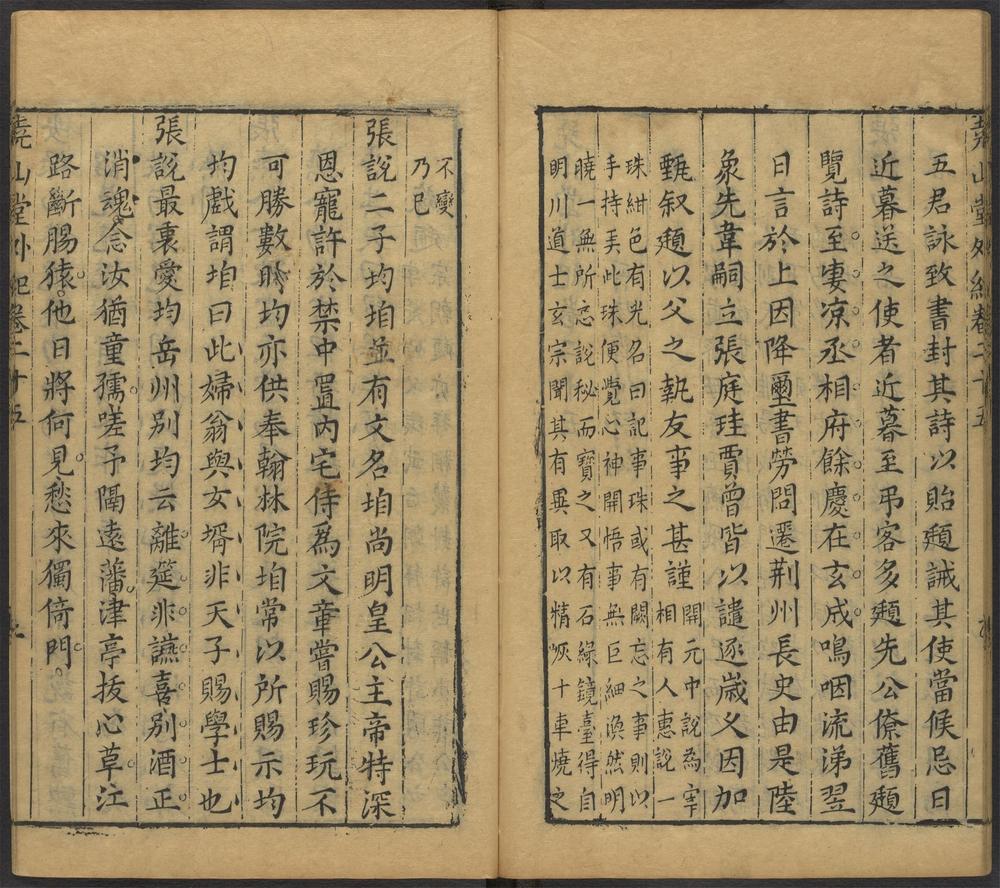 堯山堂外紀卷二十五
五君詠致書封其詩以貽頲誡其使當候忌日
近暮送之使者近暮至弔客多頲先公僚舊頲
覽詩至凄凉丞相府餘慶在玄成嗚咽流涕翌
日言於上因降璽書勞問遷荆州長史由是陸
象先韋嗣立張庭珪賈曾皆以譴逐歲乂因加
甄叙頲以父之執友事之甚謹開元中說為宰
相有人惠說一
珠紺色有光名曰記事珠或有闕忘之事則以
手持弄此珠便覺心神開悟事無巨細渙然明
曉一無所忘說秘而寶之又有石綠鏡臺得自
明川道士玄宗聞其有異取以精灰十車燒之
不變
乃已
張說二子均垍並有文名垍尚明皇公主帝特深
恩寵許於禁中置內宅侍為文章嘗賜珍玩不
可勝數時均亦供奉翰林院垍常以所賜示均
均戲謂垍曰此婦翁與女壻非天子賜學士也
張說最裏愛均岳州别均云離筵非讌喜别酒正
消魂念汝猶童孺嗟予隔遠藩津亭拔心草江
路斷腸猿他日將何見愁來獨倚門
堯山堂外紀卷二十五